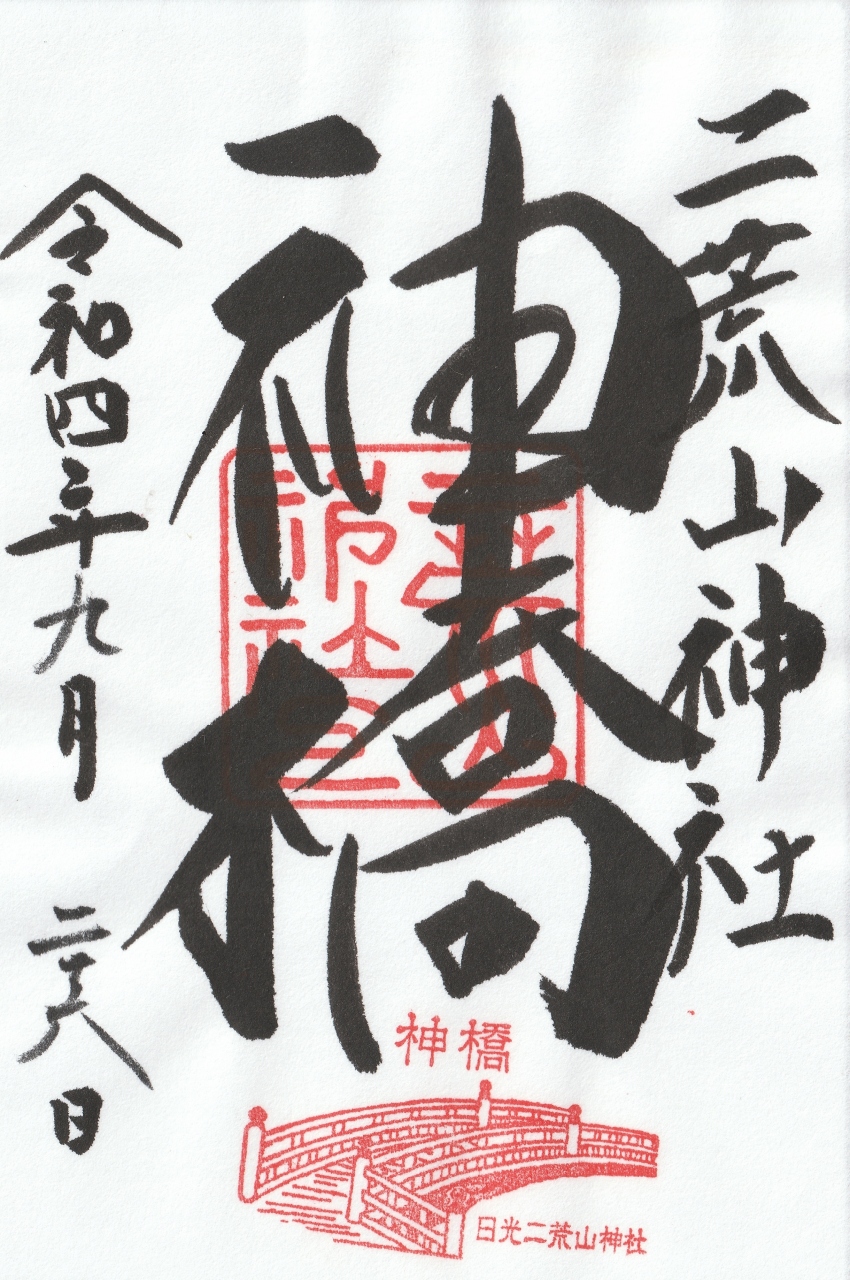 二荒山神社
神橋
令和四年九月二十八日
神橋
日光二荒山神社